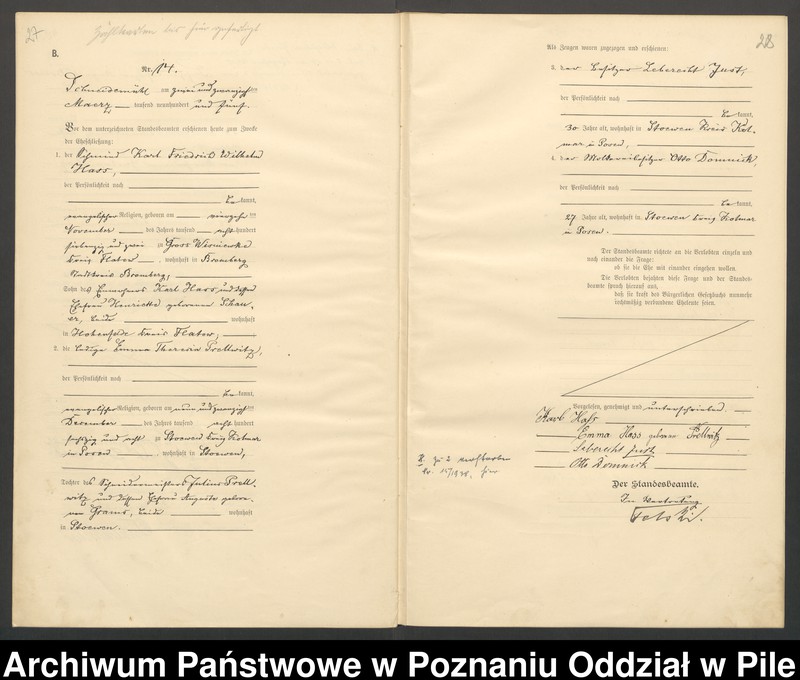 27
B.
Nr. 14.
Schneidemühl am zwei und zwanzigsten
Maerz tausend neunhundert und fünf.
Vor dem unterzeichneten Standesbeamten erschienen heute zum Zwecke
der Eheschließung:
1. der Schmied Karl Friedrich Wilhelm
Hass,
der Persönlichkeit nach
be kannt,
evangelischer Religion, geboren am vierzehnten
November des Jahres tausend acht hundert
siebenzig und zwei zu Gross Wisniewke
Kreis Flatow, wohnhaft in Bromberg
Stadtkreis Bromberg,
Sohn des Karl Hass und dessen
Ehefrau Henriette geborenen
beide wohnhaft
in Hohenfelde Kreis Flatow,
2. die ledige Emma Theresia Prellwitz,
der Persönlichkeit nach
be kannt,
evangelischer Religion, geboren am neun und zwanzigsten
December des Jahres tausend acht hundert
sechszig und acht zu Stoewen Kreis Kolmar
in Posen, wohnhaft in Stoewen,
Tochter des Schneidermeisters Julius Prell-
witz und dessen Ehefrau Auguste gebore-
nen Grams, beide wohnhaft
zu Stoewen.
28
Als Zeugen waren zugezogen und erschienen:
3. der Besitzer Leberecht Just,
der Persönlichkeit nach
be kannt,
30 Jahre alt, wohnhaft in Stoewen Kreis Kol-
mar in Posen,
4. der Molkereibesitzer Otto Domnick,
der Persönlichkeit nach
be kannt,
27 Jahre alt, wohnhaft in Stoewen Kreis Kolmar
in Posen.
Der Standesbeamte richtete an die Verlobten einzeln und
nach einander die Frage:
ob sie die Ehe mit einander eingehen wollen.
Die Verlobten bejahten diese Frage und der Standes-
beamte sprach hierauf aus,
daß sie kraft des Bürgerlichen Gesetzbuchs nunmehr
rechtmäßig verbundene Eheleute seien.
Vorgelesen, genehmigt und unterschrieben.
Karl Haß
Emma Hass geborene Prellwitz
Leberecht Just
Otto Domnick
zu 2 verstorben
Der Standesbeamte.
In Vertretung
Archiwum Państwowe w Poznaniu Oddział w Pile